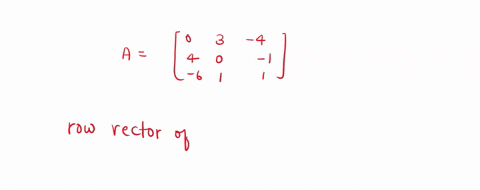 0 3 -4
A = 4 0 -1
-6 1 1
row vector of